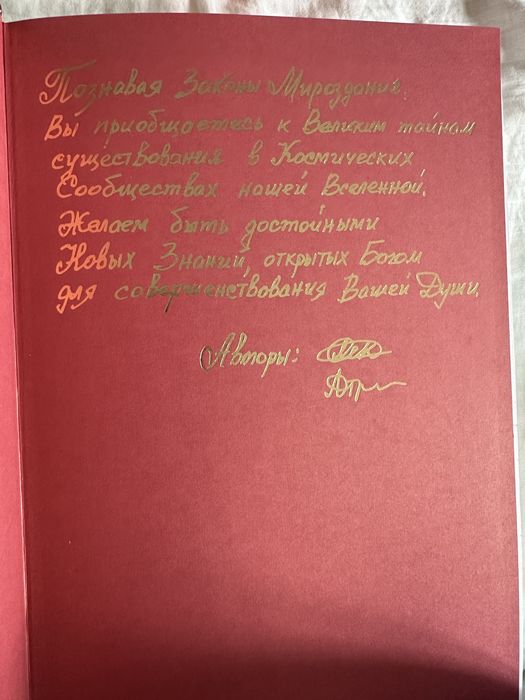 Познавая Законы Мироздания.
Вы приобщаетесь к Великим тайнам
существования в Космических
Сообществах нашей Вселенной.
Желаем быть достойными
Новых Знаний, открытых Богом
для совершенствования Вашей Души.
Авторы: